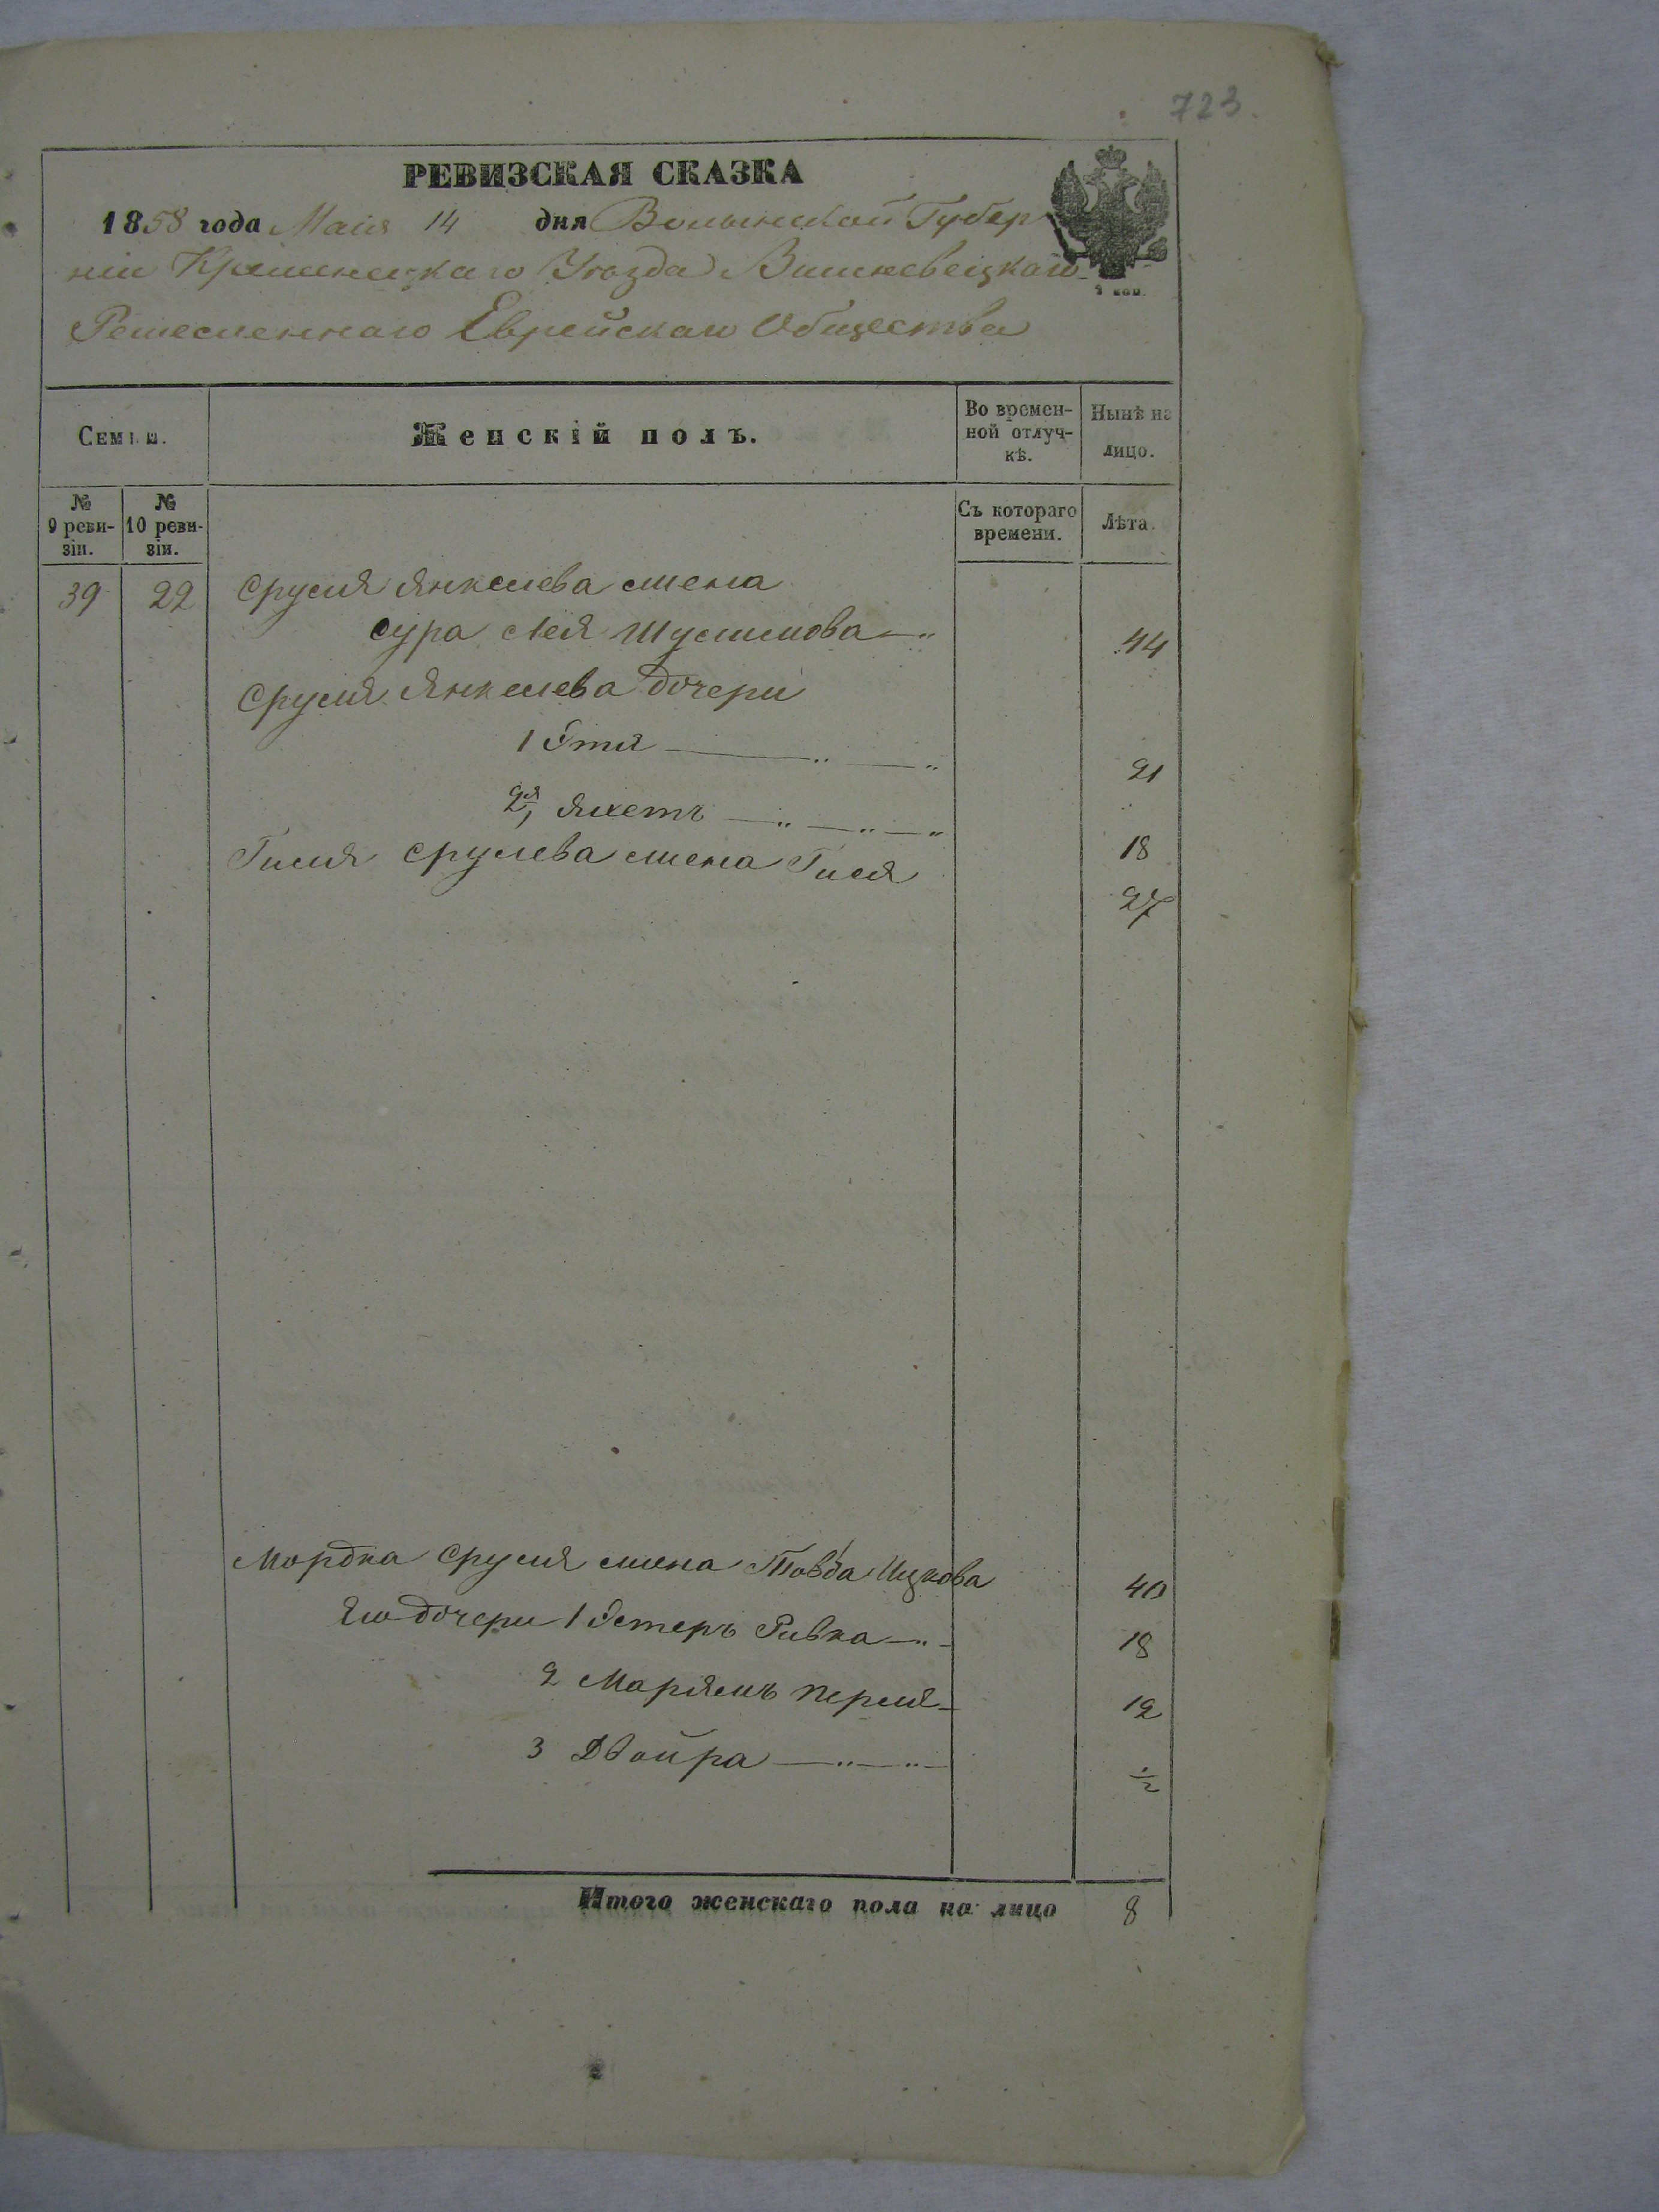 723.
РЕВИЗСКАЯ СКАЗКА
1858 года Маія 14 дня Волынской Губер
ніи Кременецкаго Уѣзда Вишневецкаго
Ремесленнаго Еврейскаго Общества
4 коп.
Семьи.
Женскій полъ.
Во времен-
ной отлуч-
кѣ.
Нынѣ на
лицо.
№
9 реви-
зіи.
№
10 реви-
зіи.
Съ котораго
времени.
Лѣта.
39 22 Сруля Янкелева жена
Сура Лея 44
Сруля Янкелева дочери
1 Этя 21
2я, Яхетъ 18
Срулева жена Гися 27
Мордка Сруля жена Товба Ицкова 40
Его дочери 1 Эстеръ Ривка 18
2 Маріямъ Перля 12
3 Двойра ½
Итого женскаго пола на лицо 8